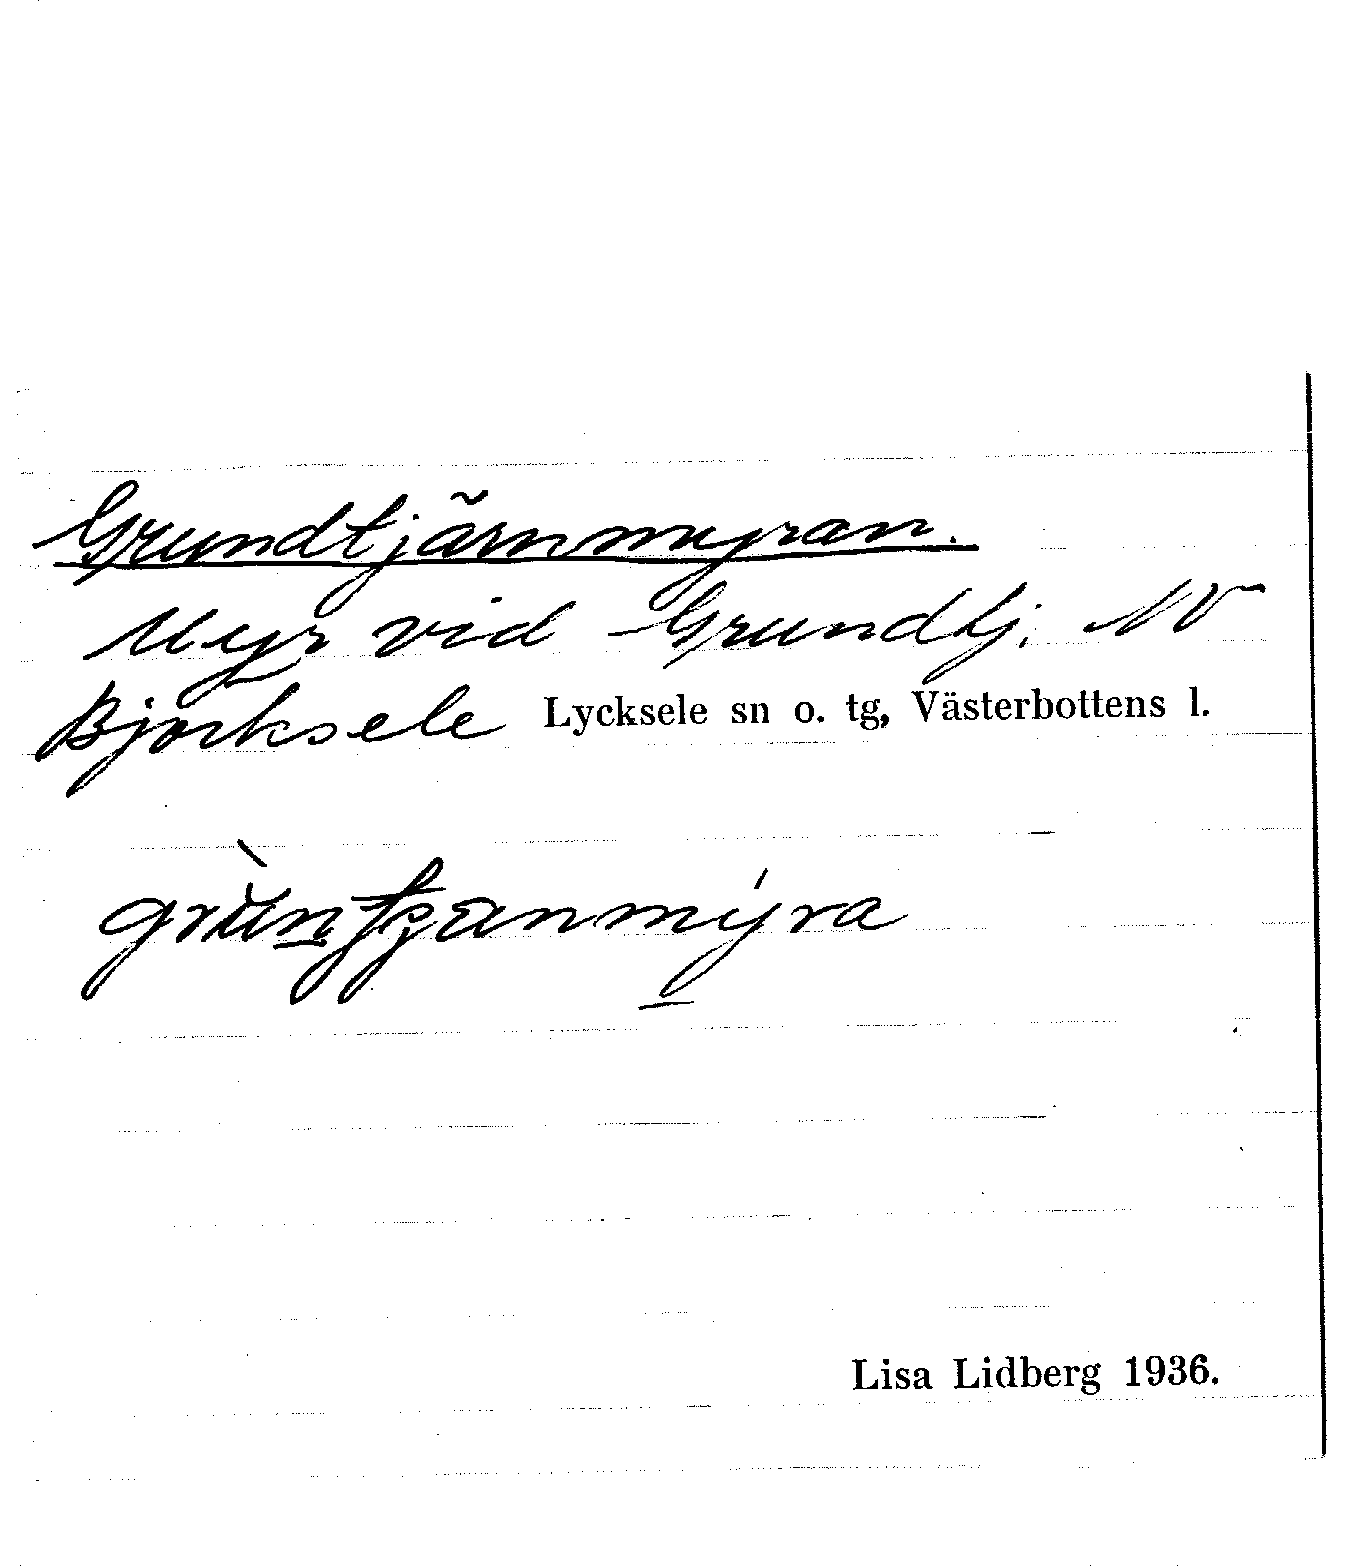 Grundtjärnmyran.
Myr vid Grundtj. NV
Björksele Lycksele sn o. tg, Västerbottens l.
Lisa Lidberg 1936.